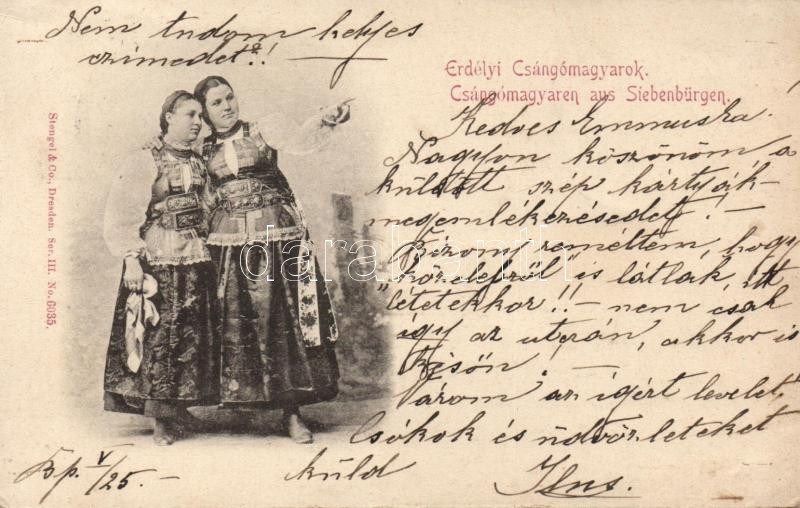 Nem tudom helyes
czimedet!!
Erdélyi Csángómagyarok.
Csángómagyaren aus Siebenbürgen.
Stengel & Co., Dresden. Ser. III. No. 6035.
Kedves Emmuska.
Nagyon köszönöm a
küldött szép kártyák-
megemlékezésedet! -
Bizony reméltem, hogy
"közelebről" is látlak, itt
létetekkor!! - nem csak
így az utczán, akkor is
késön. -
Várom az igért levelet,
Csókok és üdvözleteket
küld
Bp. V/25. -
darabanth